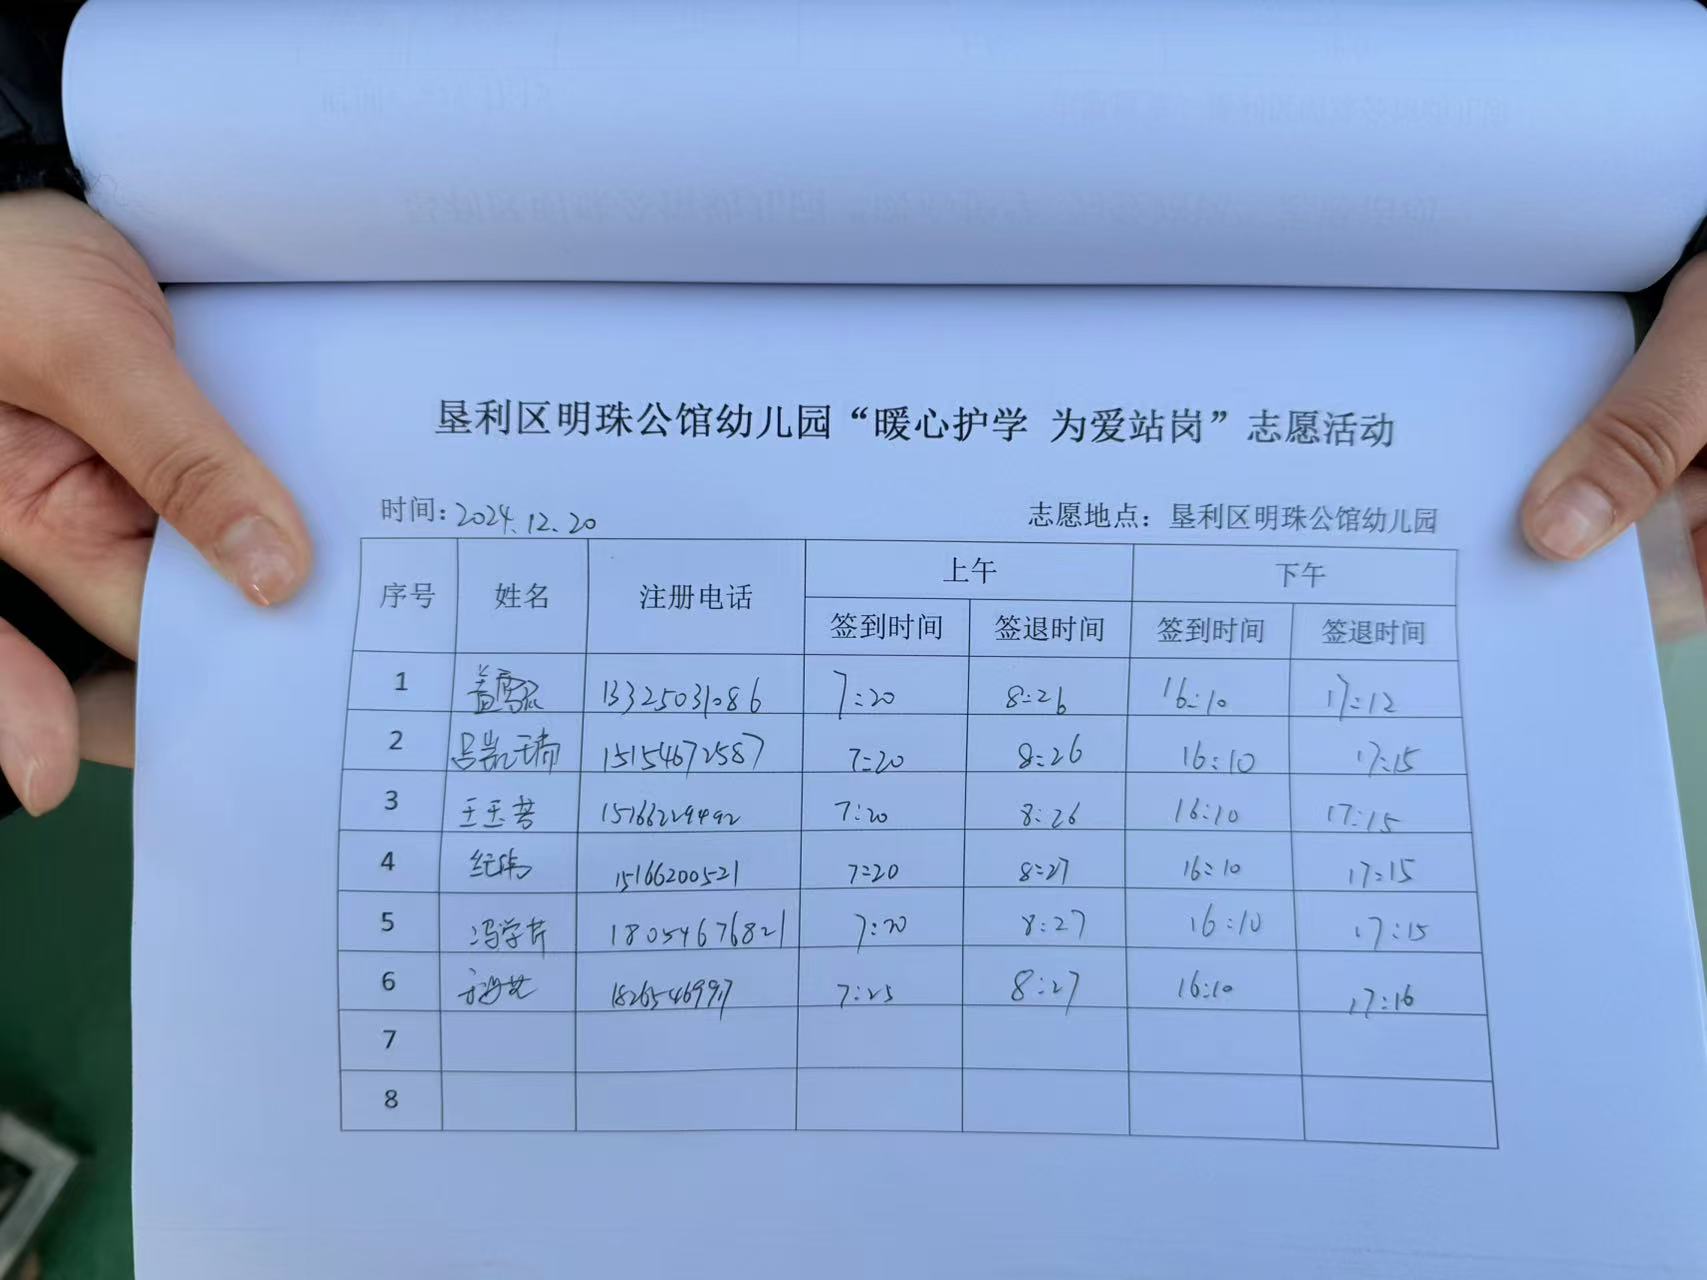 垦利区明珠公馆幼儿园“暖心护学 为爱站岗”志愿活动
时间: 2024.12.20 志愿地点：垦利区明珠公馆幼儿园
序号 姓名 注册电话 上午 下午
签到时间 签退时间 签到时间 签退时间
1 13325031086 7:20 8:26 16:10 17:12
2 吕凯瑞 15154672587 7:20 8:26 16:10 17:15
3 王玉芳 15166229492 7:20 8:26 16:10 17:15
4 纪伟 15166200521 7:20 8:27 16:10 17:15
5 冯学芹 18054676821 7:20 8:27 16:10 17:15
6 7:25 8:27 16:10 17:16
7
8